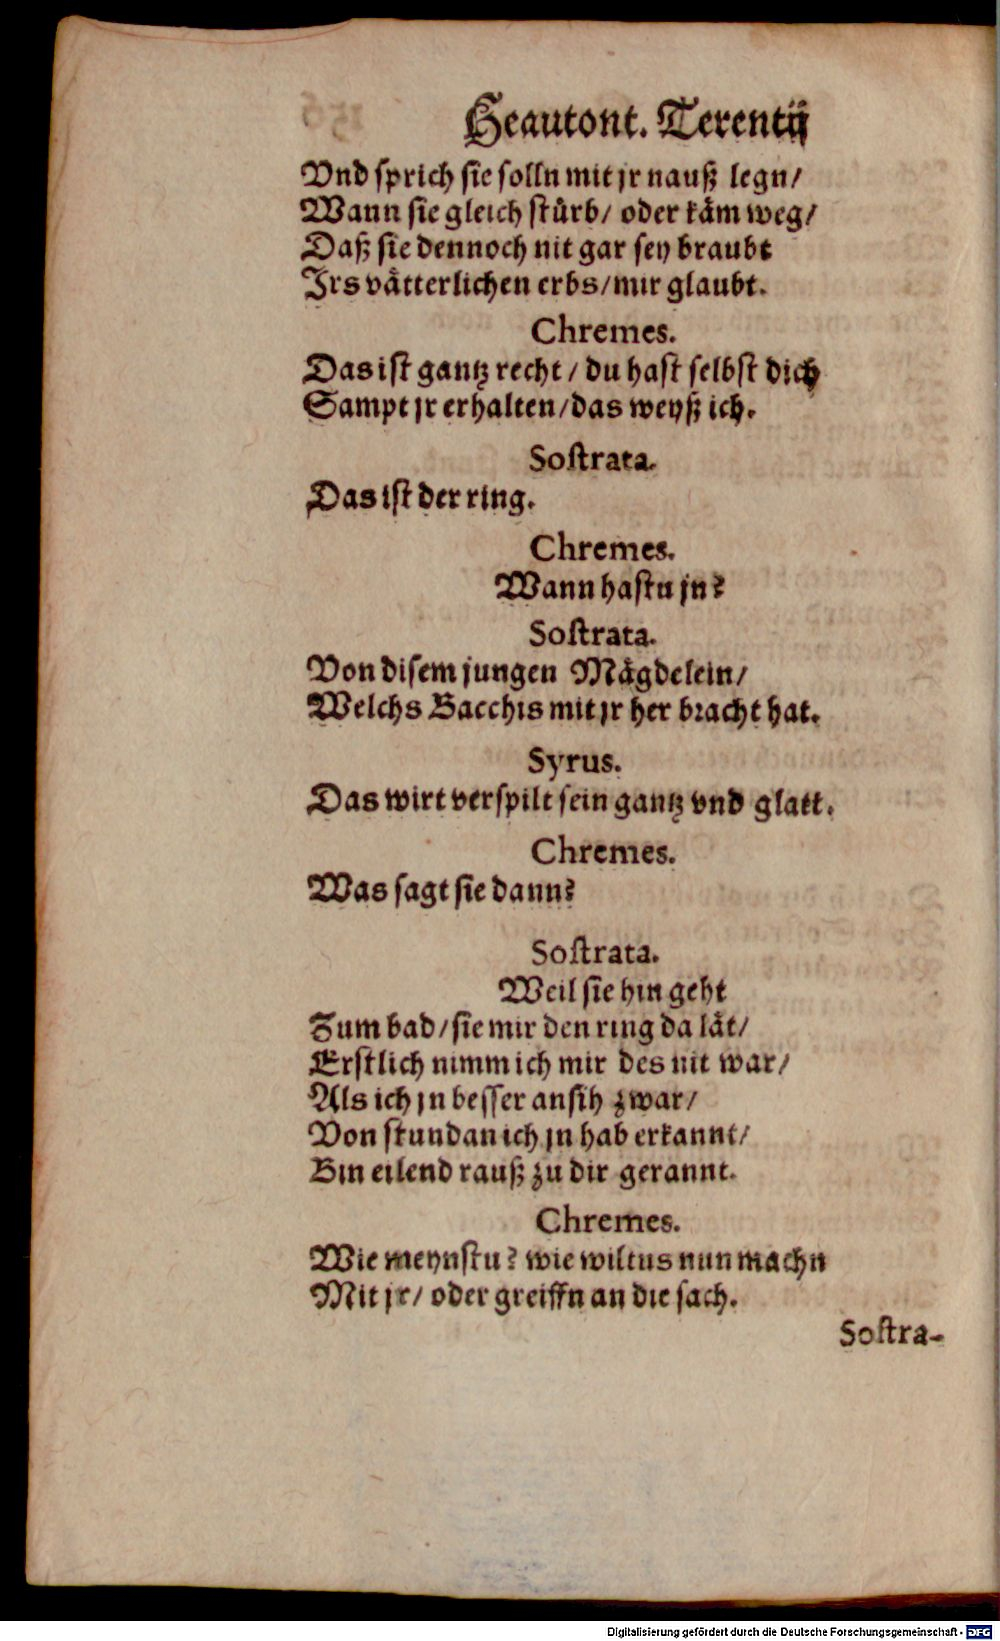 Heautont. Terentij
Vnd sprich sie solln mit jr nauß legn/
Wann sie gleich stürb/ oder käm weg/
Daß sie dennoch nit gar sey braubt
Irs vätterlichen erbs/mir glaubt.
Chremes.
Das ist gantz recht/ du hast selbst dich
Sampt jr erhalten/das weyß ich.
Sostrata.
Das ist der ring.
Chremes.
Wann hastu jn?
Sostrata.
Von disem jungen Mägdelein/
Welchs Bacchis mit jr her bracht hat.
Syrus.
Das wirt verspilt sein gantz vnd glatt.
Chremes.
Was sagt sie dann?
Sostrata.
Weil sie hin geht
Zum bad/sie mir den ring da lät/
Erstlich nimm ich mir des nit war/
Als ich jn besser ansih zwar/
Von stundan ich jn hab erkannt/
Bin eilend rauß zu dir gerannt.
Chremes.
Wie meynstu? wie wiltus nun machn
Mit jr/ oder greiffn an die sach.
Sostra-
Digitalisierung gefördert durch die Deutsche Forschungsgemeinschaft - DFG